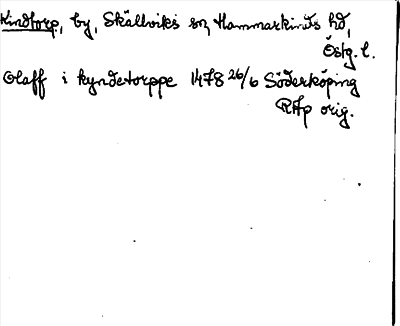 Kindtorp, by, Skällviks sn, Hammarkinds hd,
Östg. l.
Olaff i kyndetorppe 1478 26/6 Söderköping
RAp orig.